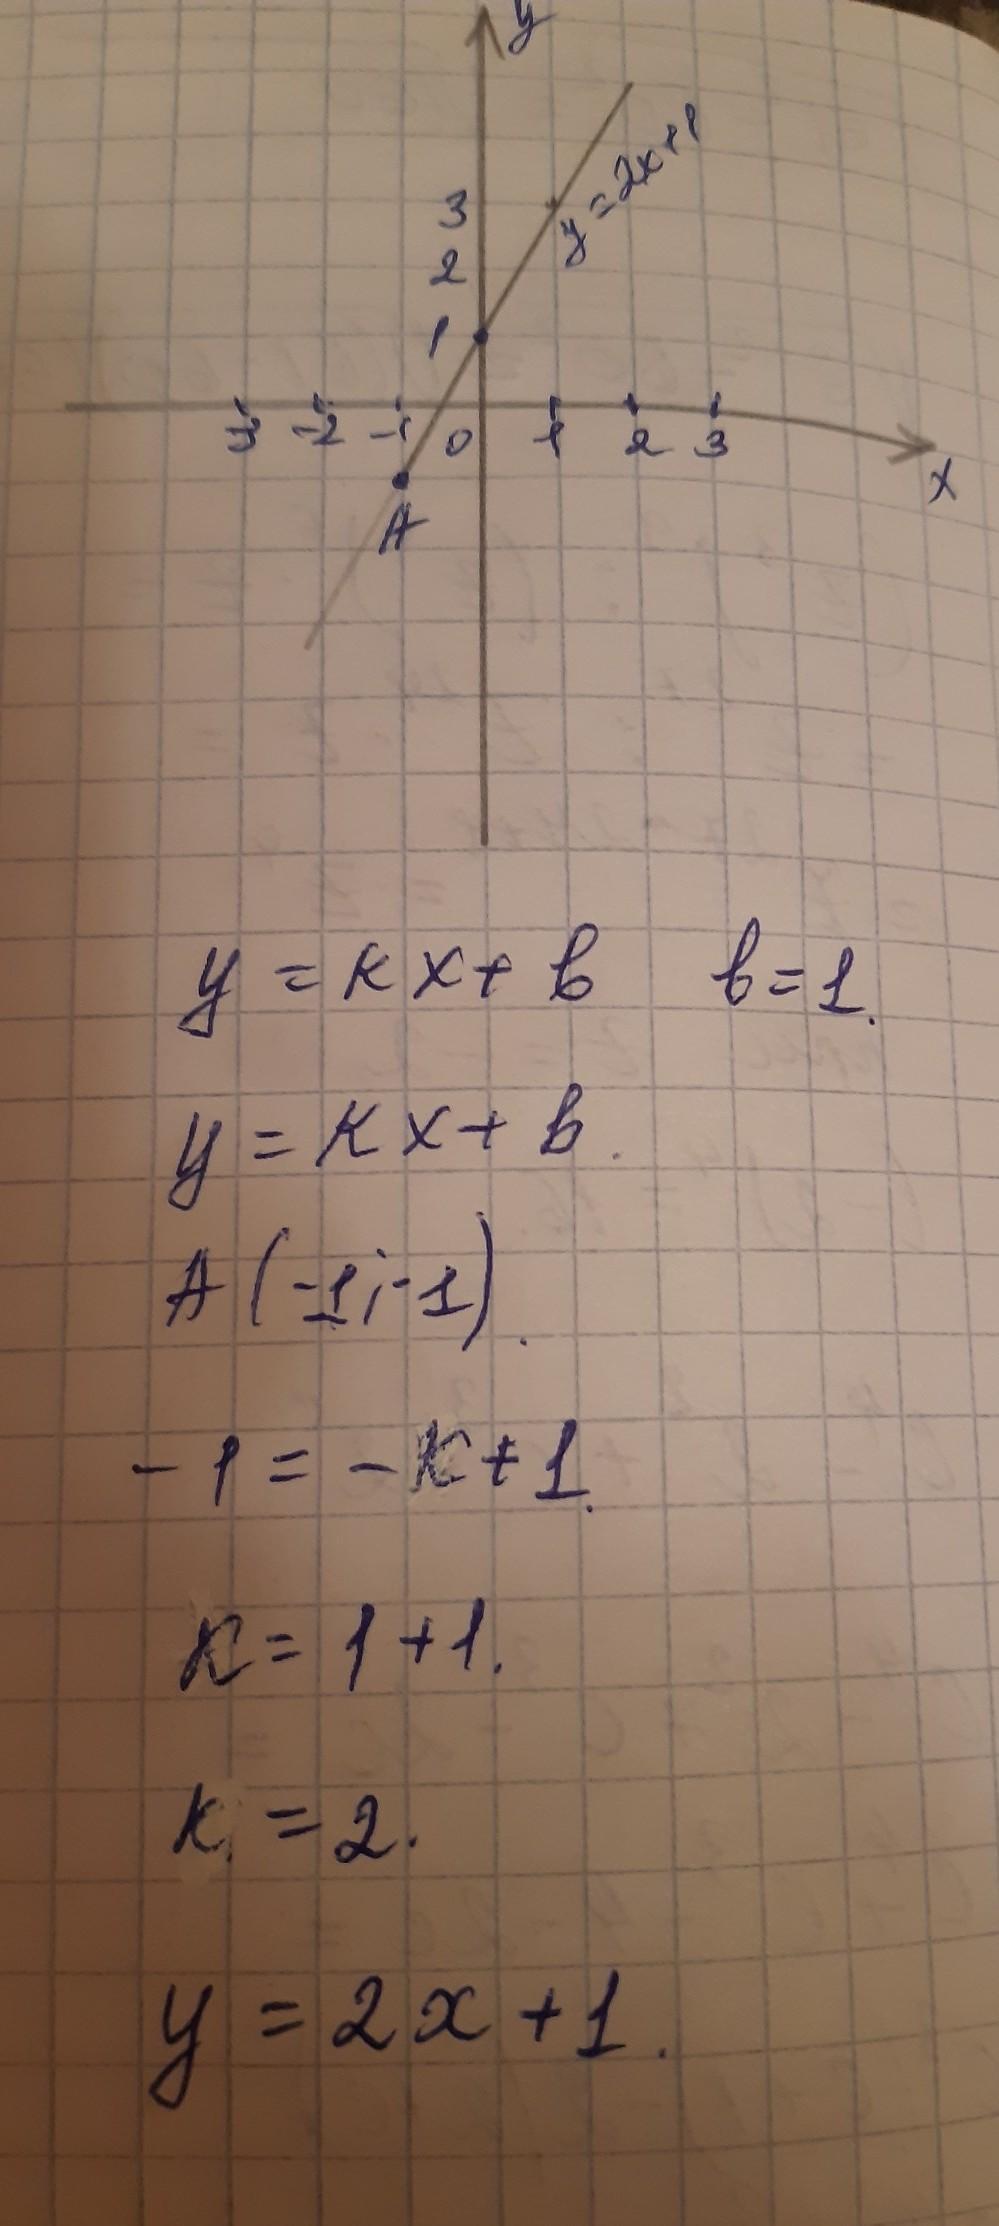 y
y = 2x+1
3
2
1
-3 -2 -1 0 1 2 3
x
A
y = kx + b b = 1.
y = kx + b.
A (-1; -1).
-1 = -k + 1.
k = 1 + 1.
k = 2.
y = 2x + 1.